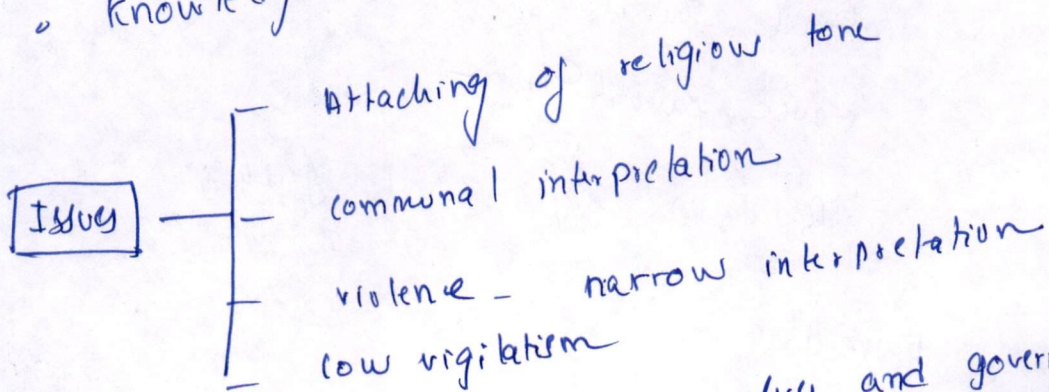 Attaching of religious tone
communal interpretation
Issues
violence - narrow interpretation
cow vigilatism
and